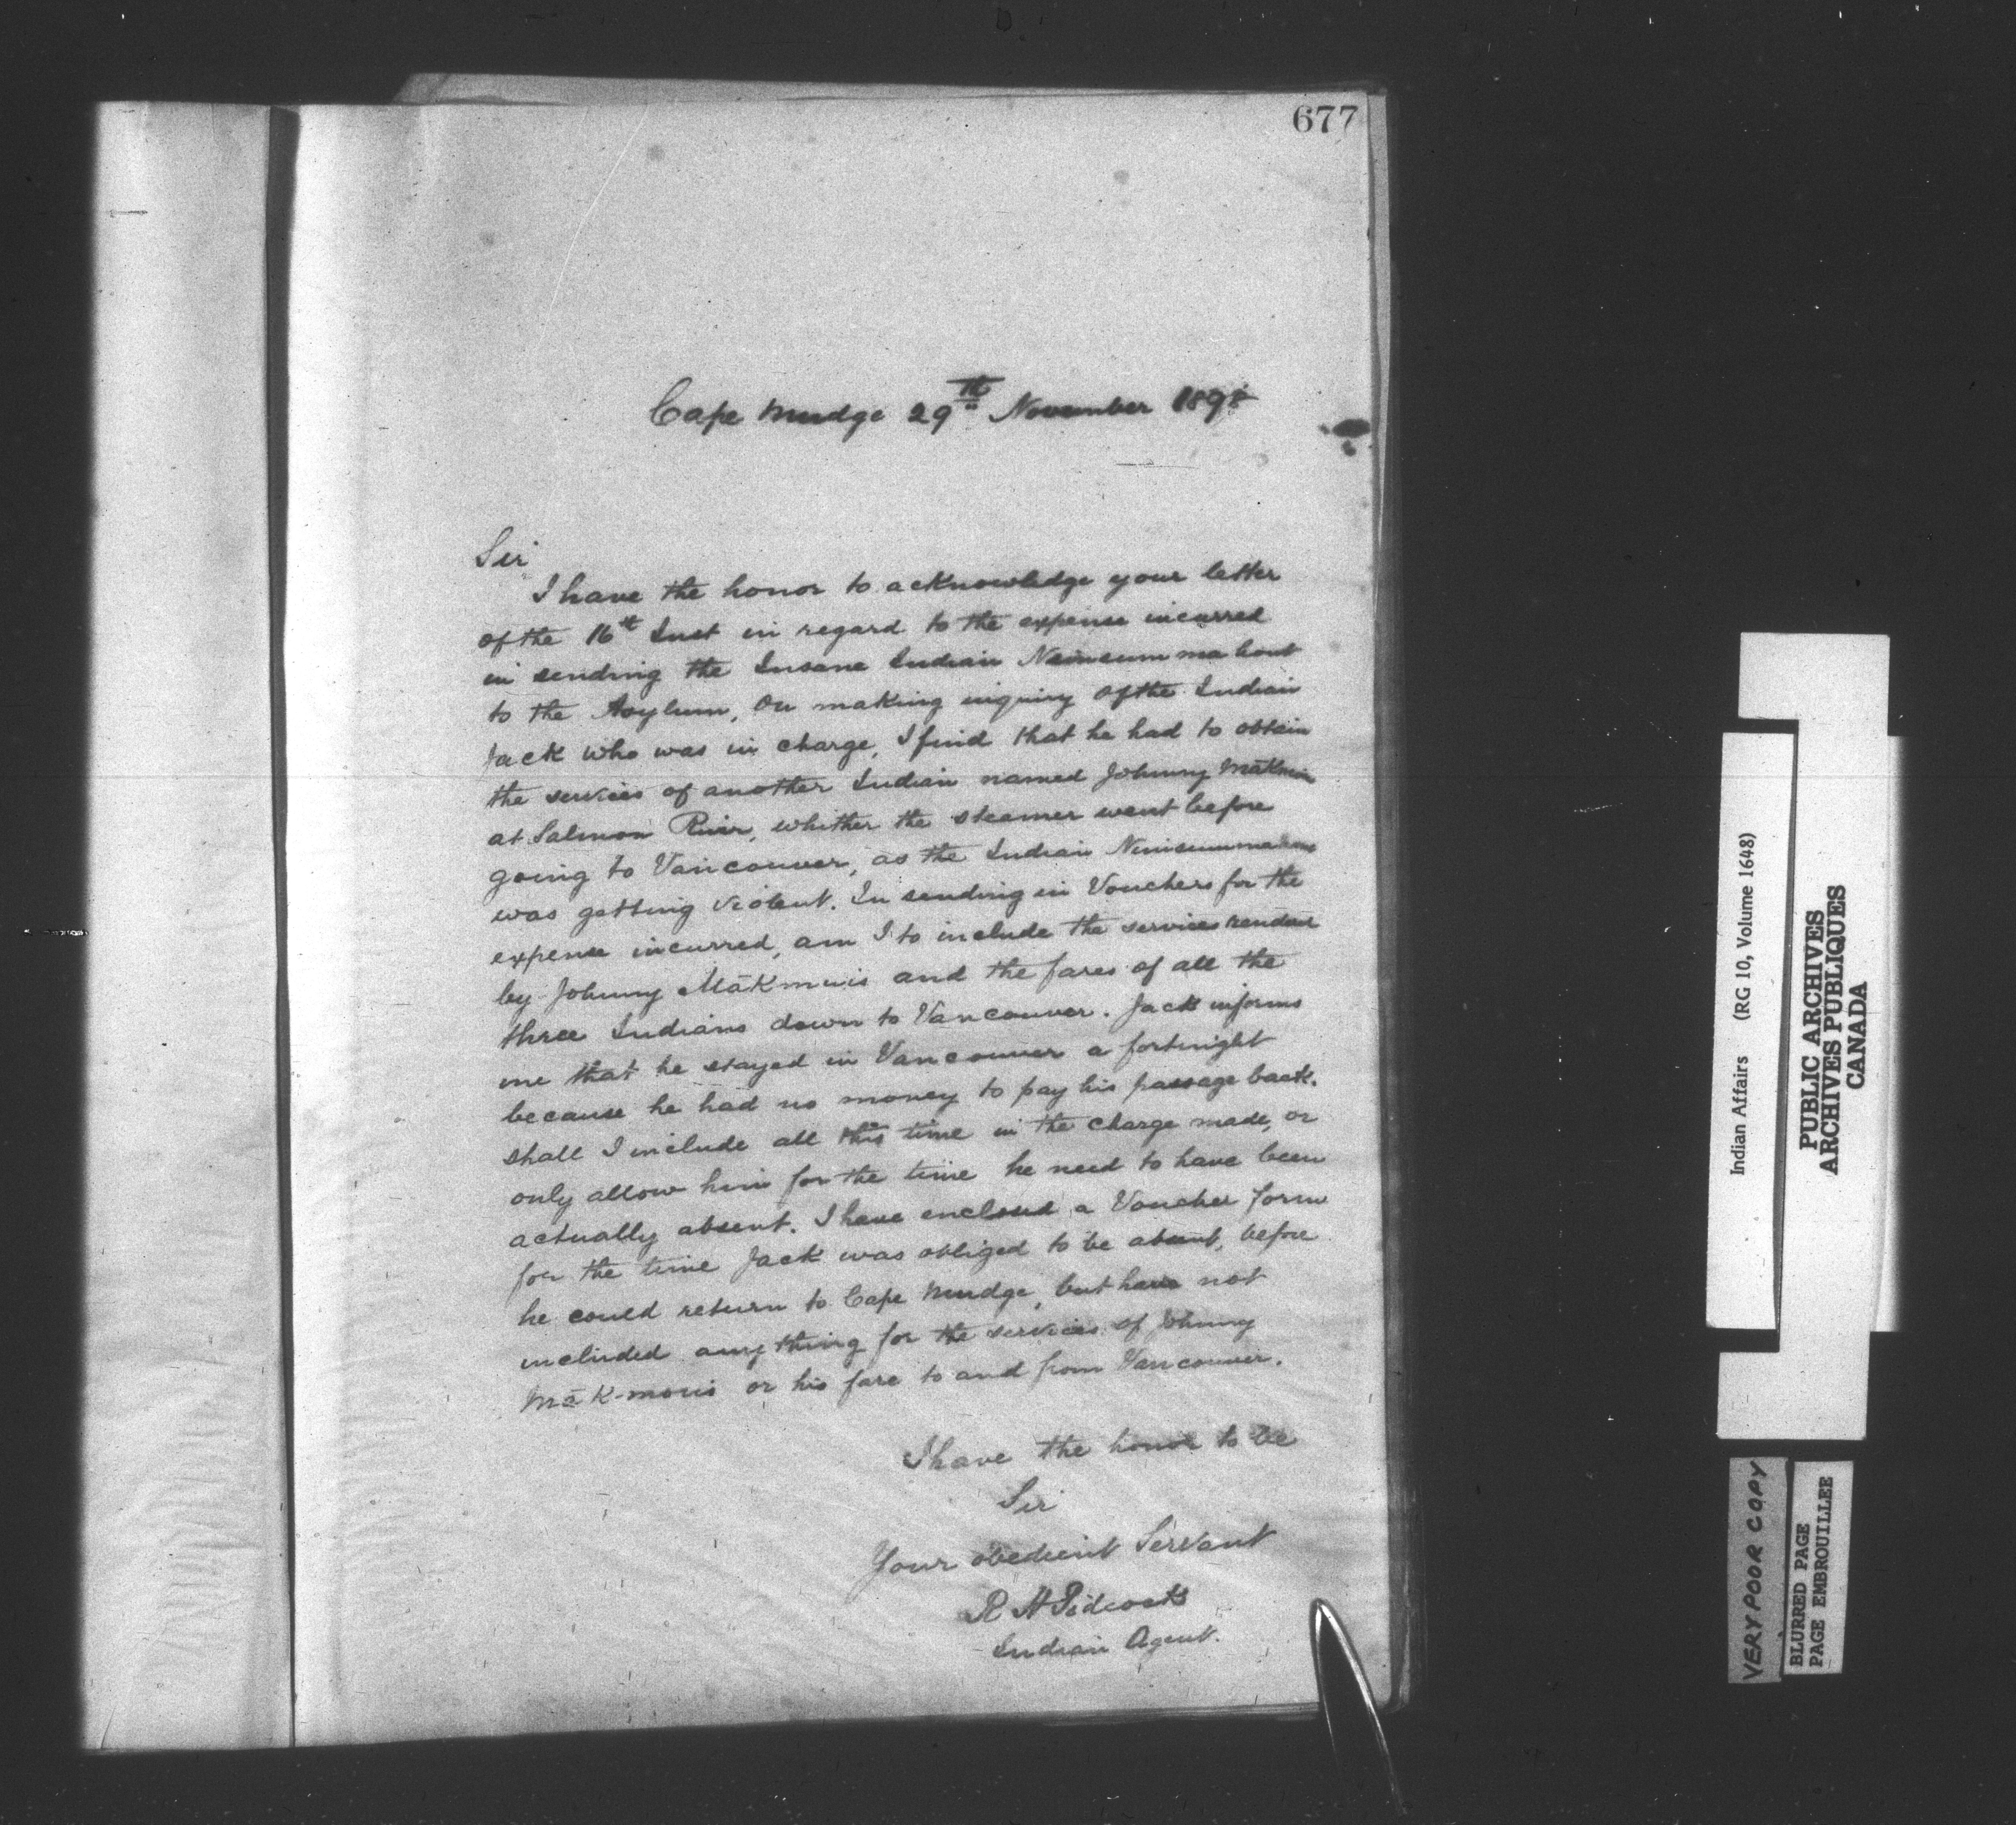 677
Cape Mudge 29th November 189
Sir
I have the honor to acknowledge your letter
of the 16th Inst in regard to the expense incurred
in sending the Insane Indian
to the Asylum, On making inquiry of the Indian
Jack who was in charge, I find that he had to obtain
the services of another Indian named Johnny
at Salmon River, whither the steamer went before
going to Vancouver, as the Indian
was getting violent. In sending in Vouchers for the
expense incurred, am I to include the services
by Johnny Mākmuis and the fares of all the
three Indians down to Vancouver. Jack informs
me that he stayed in Vancouver a fortnight
because he had no money to pay his passage back.
shall I include all this time in the charge made, or
only allow him for the time he need to have been
actually absent. I have enclosed a Voucher form
for the time Jack was obliged to be absent, before
he could return to Cape Mudge, but have not
included anything for the services of Johnny
or his fare to and from Vancouver.
I have the honor to be
Sir
Your obedient Servant
R H Pidcock
Indian Agent.
Indian Affairs (RG 10, Volume 1648)
PUBLIC ARCHIVES
ARCHIVES PUBLIQUES
CANADA
VERY POOR COPY
BLURRED PAGE
PAGE EMBROUILLEE